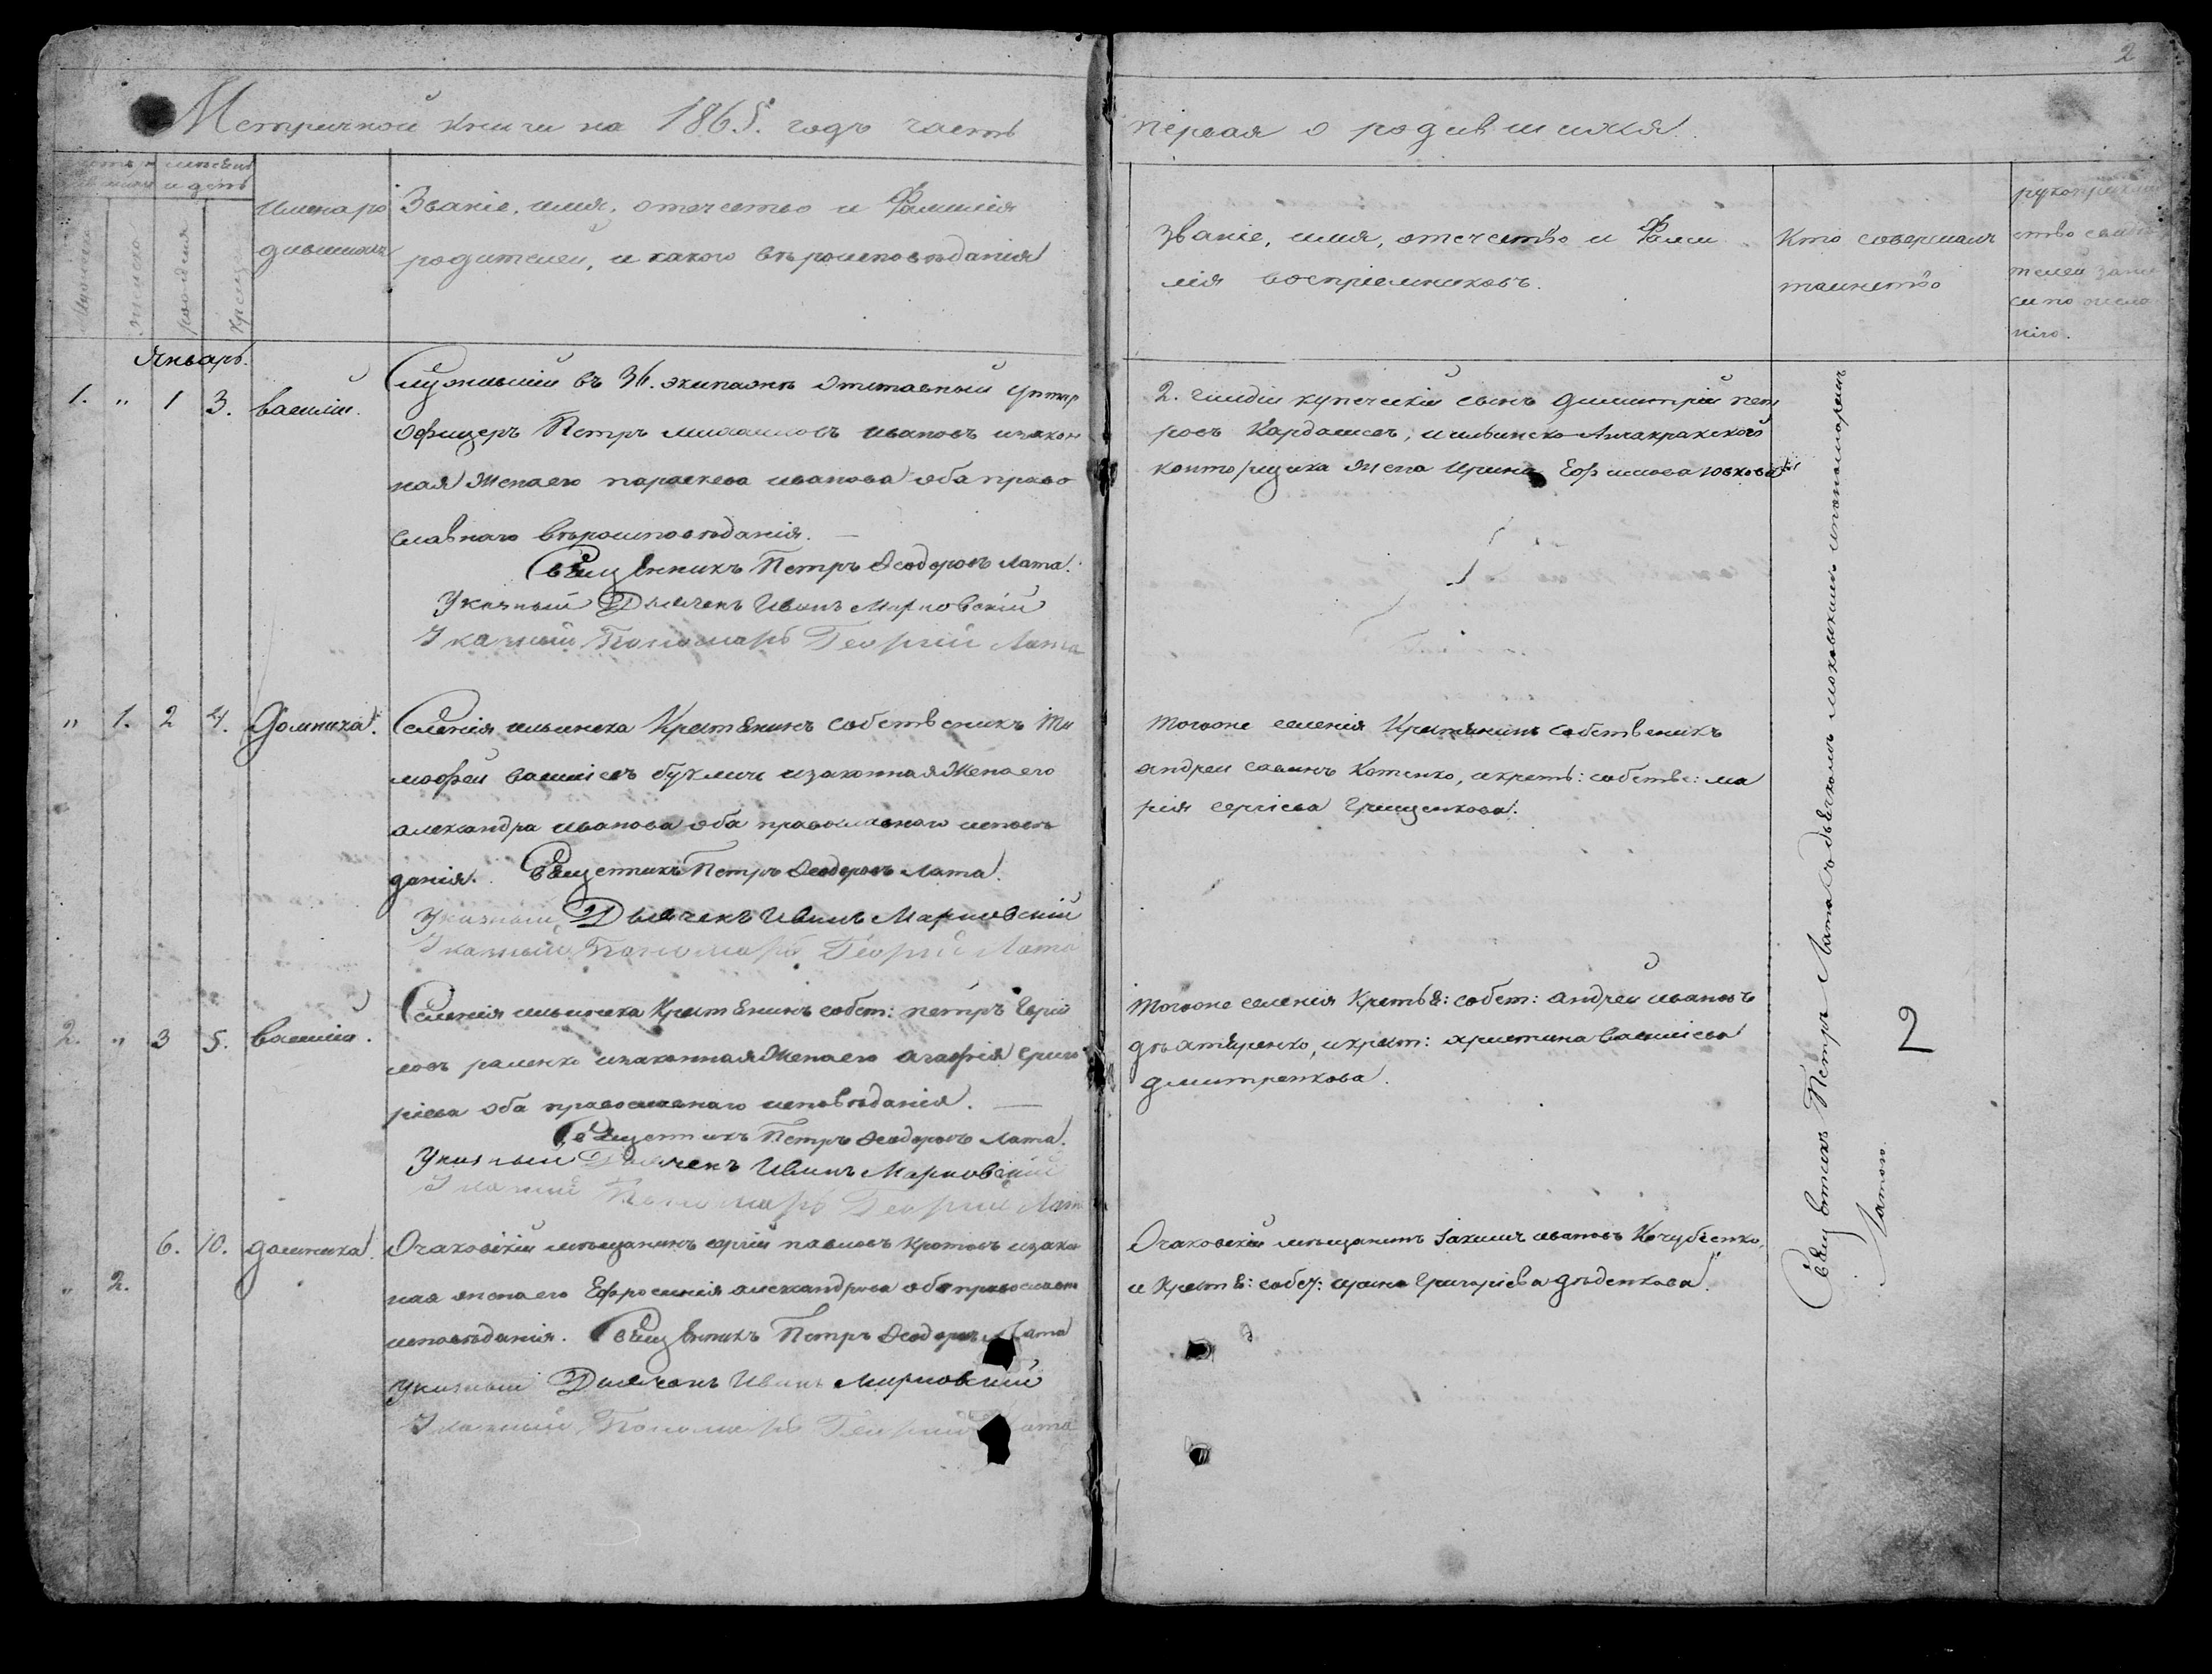 2
Метричной книги на 1865. годъ часть
первая о родившихся.
мѣсяцъ
и день
рожденія
Имена ро
дившихъ
Званіе, имя, отечество и Фамилія
родителей, и какого вѣроисповѣданія
Званіе, имя, отечество и Фами
лія воспріемниковъ.
Кто совершалъ
таинство
рукоприклад
ство свидѣ
телей записи
Январь.
1. " 1 3. Василій.
Служившій въ 36. экипажѣ отставный унтер
Офицеръ Петръ Михаиловъ Ивановъ изакон
ная Жена его Параскева Иванова оба право
славнаго вѣроисповѣданія. —
Священникъ Петръ Ѳеодоровъ Лата.
Указный Дьячекъ Иванъ Марковскій
Указный Пономарь Георгій Лата
2. гильдіи купеческій сынъ Димитрій Пет
ровъ Кардашев, и ильинско
конторщика Жена Ирина Ефимова
" 1. 2 4. Домника.
Селенія ильинска Крестьянинъ собственикъ Ти
мофей Василіевъ изаконная Жена его
Александра Иванова оба православнаго исповѣ
данія. Священникъ Петръ Ѳеодоровъ Лата.
Указный Дьячекъ Иванъ Марковскій
Указный Пономарь Георгій Лата
Тогоже селенія Крестьянинъ собственикъ
Андрей Савинъ Котенко, икресть: собстве: Ма
рія Сергіева Грищенкова.
2. " 3 5. Василій.
Селенія ильинска Крестьянинъ собст: Петръ
ловъ изаконная Жена его Агафія Григо
ріева оба православнаго исповѣданія. —
Священникъ Петръ Ѳеодоровъ Лата.
Указный Дьячекъ Иванъ Марковскій
Указный Пономарь Георгій Лата
Тогоже селенія Крестья: собст: Андрей Ивановъ
Дѣхтяренко, икрест: Христина Василіева
Дмитренкова.
" 2. 6. 10. Домника.
Очаковскій мѣщанинъ Сергій Павловъ Кротовъ изакон
ная жена его Ефросинія Александрова оба православн
исповѣданія. Священникъ Петръ Ѳеодоровъ Лата
Указный Дьячекъ Иванъ Марковскій
Указный Пономарь Георгій Лата
Очаковскій мѣщанинъ Іакимъ Ивановъ Кочубѣенко,
и Крестья: собст: Ирина Григоріева Дѣденкова.
Священникъ Петръ Лата съ дьячкомъ Марковскимъ ипономоремъ
Латою.
2